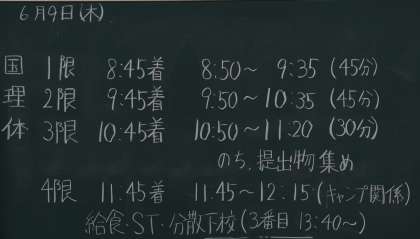 6月9日(木)
国 1限 8:45着 8:50～ 9:35 (45分)
理 2限 9:45着 9:50～10:35 (45分)
体 3限 10:45着 10:50～11:20 (30分)
のち、提出物集め
4限 11.45着 11.45～12:15(キャンプ関係)
給食・ST・分散下校(3番目 13:40～)